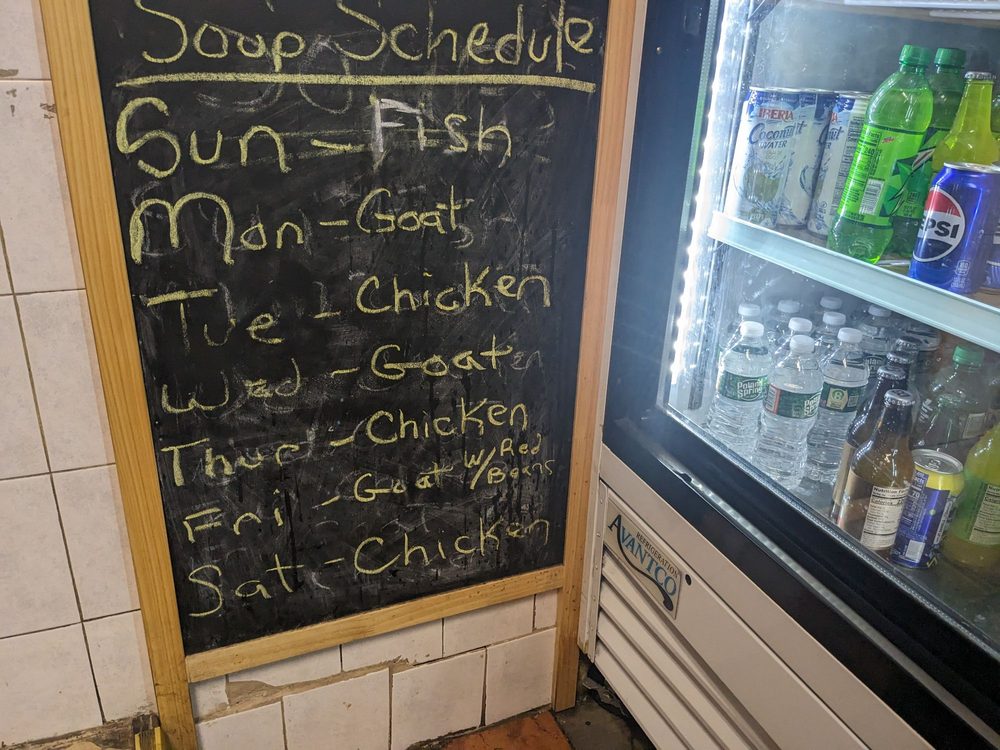 Soup Schedule
Sun - Fish
Mon - Goat
Tue - Chicken
Wed - Goat
Thur - Chicken
Fri - Goat w/Red
Beans
Sat - Chicken
IBERIA
Coconut
WATER
PSI
Poland
Spring
REFRIGERATION
AVANTCO